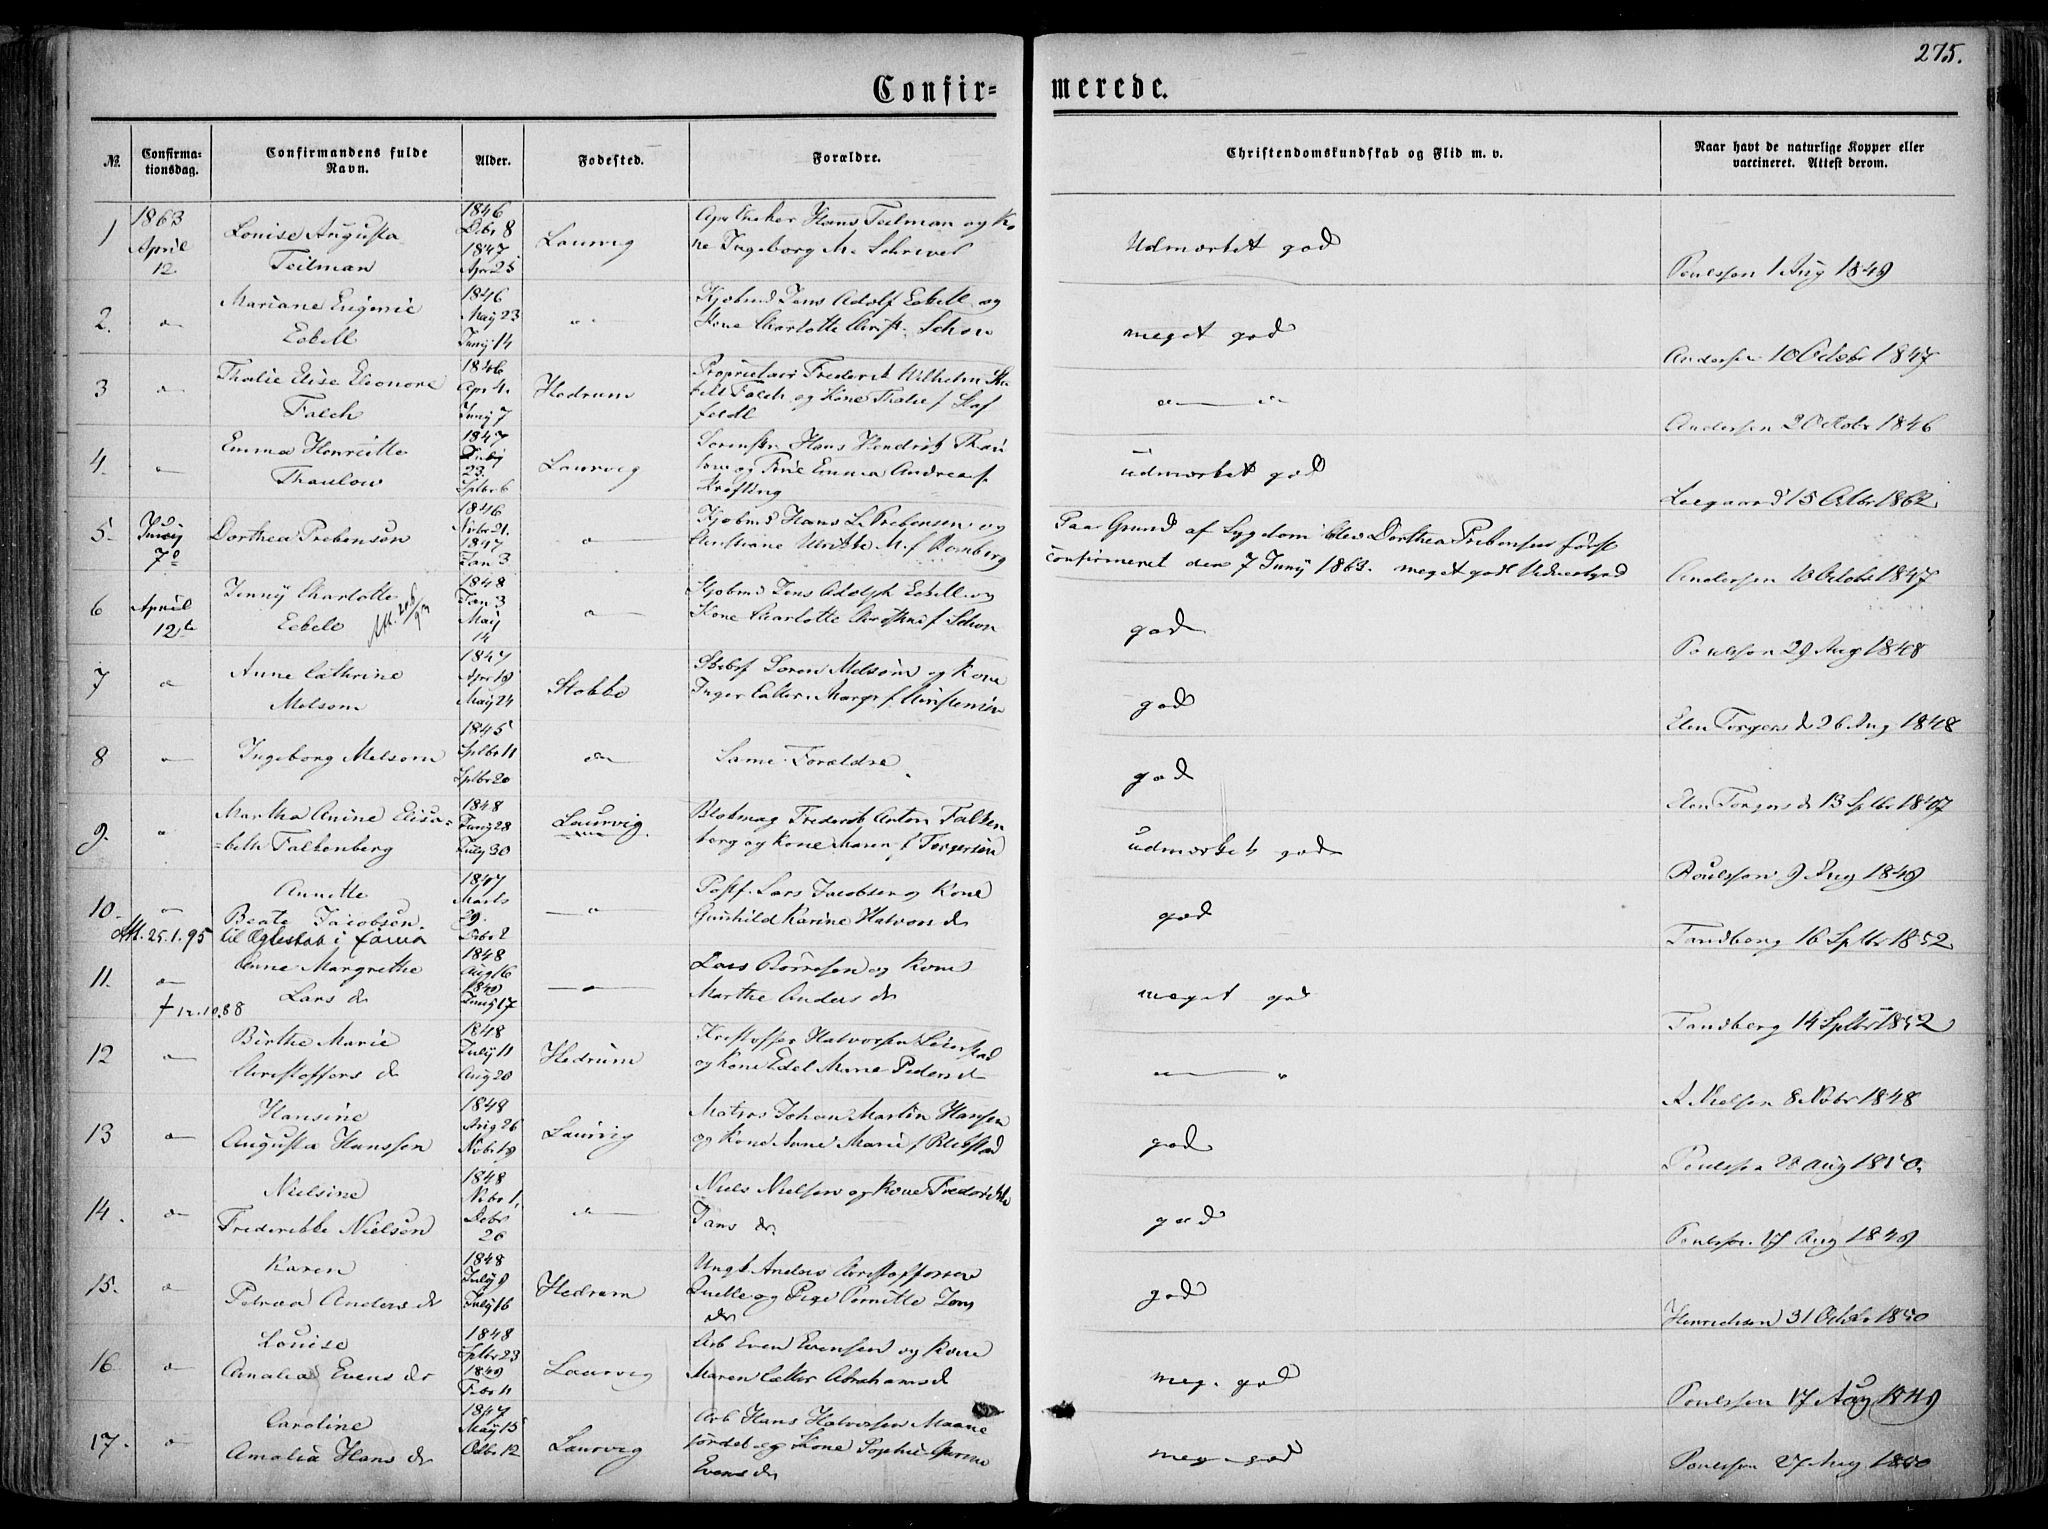 275.
Confir=
merede.
№.
Confirma-
tionsdag.
Confirmandens fulde
Navn.
Alder.
Fodested.
Forældre.
Christendomskundskab og Flid m. v.
Naar havt de naturlige Kopper eller
vaccineret. Attest derom.
1
1863
April
12
Louise Augusta
Teilman
1846
Debr 8
1847
Apr 25
Laurvig
Apotheker Hans Teilman og Ko
ne Ingeborg M.
Udmærket god
Poulsson 1 Aug 1849
2.
Mariane Eugenie
Eckell
1846
May 23
Juny 14
Kjøbmd Jens Adolf Eckell og
Kone Charlotte Christ. Schon
meget god
Andersen 10 Octobr 1847
3
Thalie Elise Eleonore
Falch
1846
Apr 4.
Juny 7
Hedrum
Proprietair Frederik Wilhelm
Falch og Kone Thalie f. Staf
feldt
Andersen 2 Octobr 1846
4.
Emma Henriette
Thaulow
1847
July
23
Sptbr 6
Laurvig
Sorenskr. Hans Hendrik Thau
low og Frue Emma Andrea f.
Krefting
udmærket god
15 Octbr 1862
5.
Juny
7de
Dorthea Prebensen
1846
Nvbr 21.
1847
Jan 3
Kjøbmd Hans L. Prebensen og
Christiane Ulrikke M. f Romberg
Paa Grund af Sygdom blev Dorthea Prebensen først
confirmeret den 7 Juny 1863. meget godt Vidnesbyrd
Andersen 10 Octobr 1847
6
April
12te
Jenny Charlotte
Eckell
1848
Jan 3
May
14
Kjøbmd Jens Adolph Eckell og
Kone Charlotte f Schon
god
Poulsson 29 Aug 1848
7
Anne Cathrine
Melsom
1847
Apr 18
May 24
Stokke
Skibsf Soren Melsom og Kone
Inger Cathr. Margr f Christensen
god
Elen Torgers d 26 Aug 1848
8
Ingeborg Melsom
1845
Sptbr 11
Sptbr 20
Same Forældre
god
Elen Torgers d 13 Sptbr 1847
9.
Martha Anine Elisa-
=beth Falkenberg
1848
Juny 28
July 30
Laurvig
Blokmag Frederik Anton Falken
berg og Kone Maren f Torgersen
udmærket god
Poulsson 9 Aug 1849
10.
Annette
Beate Jacobsen.
Att. 25.1.95 til Egteskab i
1847
Marts
29.
Debr 2
Postf. Lars Jacobsen og Kone
Gunhild Karine Halvors d
god
Tandberg 16 Sptbr 1852
11.
† 12.10.88
Anne Margrethe
Lars d
1848
Aug 16
1849
Juny 17
Lars Børresen og Kone
Marthe Anders d
meget god
Tandberg 14 Sptbr 1852
12
Birthe Marie
Christoffers d
1848
July 11
Aug 20
Hedrum
Kristoffer Halvorsen
og Kone Edel Marie Peders d
A Nielsen 8 Nvbr 1848
13
Hansine
Augusta Hanssen
1849
Aug 26
Nvbr 18
Laurvig
Matros Johan Martin Hansen
og Kone Anne Marie f
god
Poulsson 20 Aug 1850
14.
Nielsine
Frederikke Nielsen
1848
Nvbr 1
Debr
26
Niels Nielsen og Kone Frederikke
Jans d.
god
Poulsson. 17 Aug 1849
15.
Karen
Petrea Anders d
1848
July 9
July 16
Hedrum
Ungk Anders Christoffersen
og Pige Pernille Jens
d
god
Henrichsen 31 Octbr 1850
16
Louise
Amalia Evens d
1848
Sptbr 23
1849
Febr 11
Laurvig
Arb Even Evensen og Kone
Maren Cathr Abrahams d
meg. god
Poulsson 17 Aug 1849
17.
Caroline
Amalia Hans d
1847
May 15
Octbr 12
Laurvig
Arb Hans Halvorsen Maane
jordet og Kone Sophie
Evens d
meg. god
Poulsson 27 Aug 1850